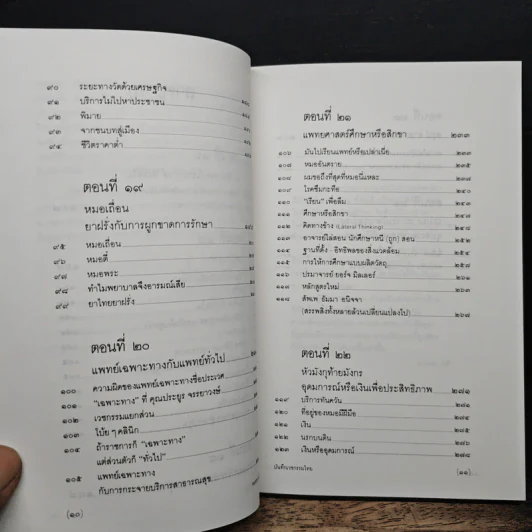 ๙๐ ระยะทางวัดด้วยเศรษฐกิจ
๙๑ บริการไม่ไปหาประชาชน
๙๒ พิมาย
๙๓ จากชนบทสู่เมือง
๙๔ ชีวิตราคาต่ำ
ตอนที่ ๑๙
หมอเถื่อน
ยาฝรั่งกับการผูกขาดการรักษา
๙๕ หมอเถื่อน
๙๖ หมอตี๋
๙๗ หมอพระ
๙๘ ทำไมพยาบาลจึงอารมณ์เสีย
๙๙ ยาไทยยาฝรั่ง
ตอนที่ ๒๐
แพทย์เฉพาะทางกับแพทย์ทั่วไป
๑๐๐ ความผิดของแพทย์เฉพาะทางชื่อประเวศ
๑๐๑ "เฉพาะทาง" ที่ คุณประยูร จรรยาวงษ์
๑๐๒ เวชกรรมแยกส่วน
๑๐๓ โบ๊ย ๆ คลินิก
๑๐๔ ถ้าราชการก็ "เฉพาะทาง"
แต่ส่วนตัวก็ "ทั่วไป"
๑๐๕ แพทย์เฉพาะทาง
กับการกระจายบริการสาธารณสุข
(๑๐)
ตอนที่ ๒๑
แพทยศาสตร์ศึกษาหรือสิกขา ๒๓๓
๑๐๖ มันไปเรียนแพทย์หรือเปล่าเนี่ย ๒๓๓
๑๐๗ หมออันตราย ๒๓๕
๑๐๘ ผมขอถึงที่สุดที่หมอนี่แหละ
๑๐๙ โรคซึมกะทือ ๒๔๐
๑๑๐ "เรียน" เพื่อลืม
๑๑๑ ศึกษาหรือสิกขา
๑๑๒ คิดทางข้าง (Lateral Thinking)
๑๑๓ อาจารย์ไล่สอน นักศึกษาหนี (ถูก) สอน ๒๕๑
๑๑๔ ฐานที่ตั้ง - อิทธิพลของสิ่งแวดล้อม
๑๑๕ การให้การศึกษาแบบผลิตวัตถุ
๑๑๖ ปรมาจารย์ ยอร์จ มิลเลอร์ ๒๖๑
๑๑๗ หลักสูตรใหม่ ๒๖๓
๑๑๘ สัพเพ ธัมมา อนิจจา
(สรรพสิ่งทั้งหลายล้วนเปลี่ยนแปลงไป) ๒๖๘
ตอนที่ ๒๒
หัวมังกุท้ายมังกร
อุดมการณ์หรือเงินเพื่อประสิทธิภาพ ๒๗๑
๑๑๙ บริการทันควัน ๒๗๑
๑๒๐ ที่อยู่ของหมอมีฝีมือ
๑๒๑ เงิน
๑๒๒ นรกบนดิน
๑๒๓ เงินหรืออุดมการณ์
บันทึกเวชกรรมไทย
(๑๑)